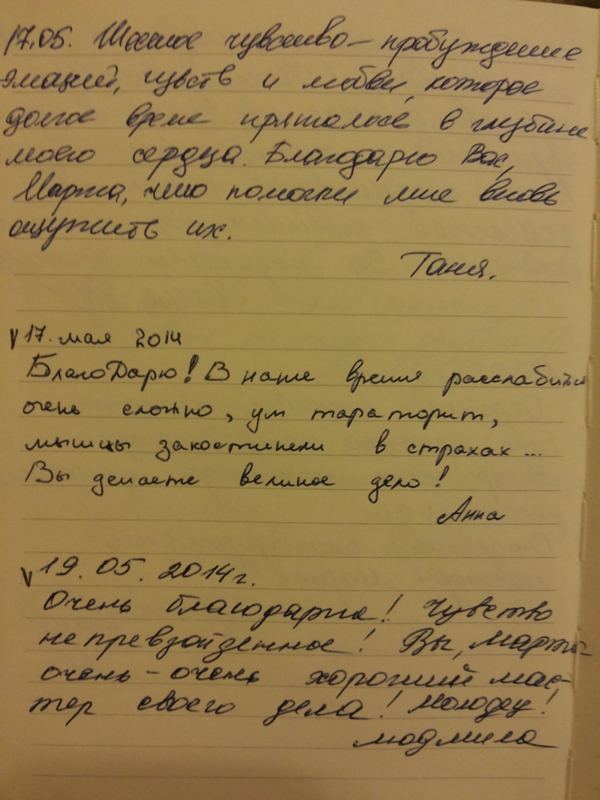 17.05. Шасное чувство – пробуждение
эмаций, чувств и любви, которое
долгое время пряталось в глубине
моего сердца. Благодарю Вас,
Марта, что помогли мне вновь
ощутить их.
Таня.
v 17. мая 2014
БлагоДарю! В наше время расслабиться
очень сложно, ум тараторит,
мышцы закостинели в страхах...
Вы делаете великое дело!
Анна
v 19.05.2014г.
Очень благодарна! Чувство
непревзойденное! Вы, Марта
очень-очень хороший мас-
тер своего дела! Молодец!
Людмила